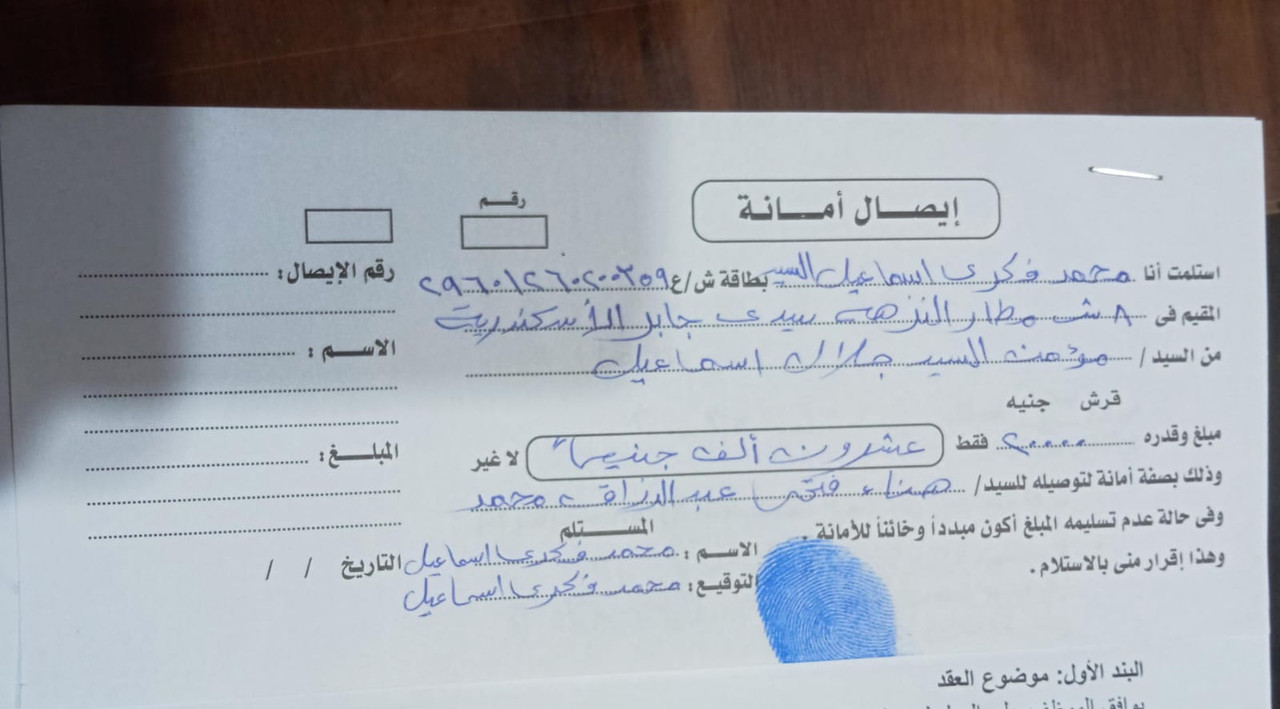 إيصال أمانة
رقم
استلمت أنا محمد فكرى اسماعيل السيد بطاقة ش/ع ٢٩٦٠١٢٦٠٢٠٠٣٥٩
المقيم فى ٨ ش مطار النزهه سيدى جابر الأسكندرية
من السيد / مؤمن السيد جلال اسماعيل
قرش جنيه
مبلغ وقدره ٢٠٠٠٠ فقط عشرون ألف جنيهاً لا غير
وذلك بصفة أمانة لتوصيله للسيد/ هناء فتحى عبد الرزاق محمد
وفى حالة عدم تسليمه المبلغ أكون مبدداً وخائناً للأمانة .
وهذا إقرار منى بالاستلام .
المستلم
الاسم : محمد فكرى اسماعيل
التوقيع : محمد فكرى اسماعيل
التاريخ / /
رقم الإيصال :
الاسم :
المبلغ :
البند الأول: موضوع العقد